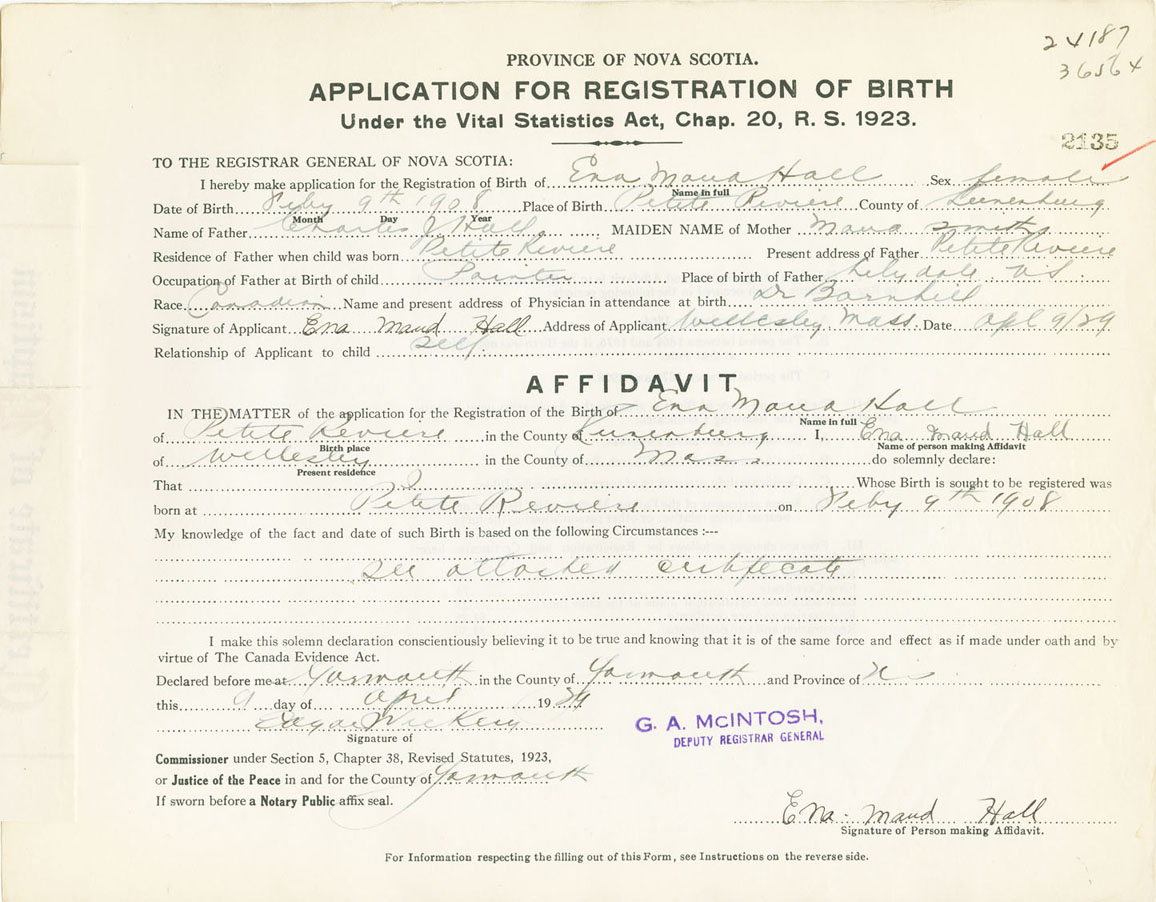 24187
36564
PROVINCE OF NOVA SCOTIA.
APPLICATION FOR REGISTRATION OF BIRTH
Under the Vital Statistics Act, Chap. 20, R. S. 1923.
2135
TO THE REGISTRAR GENERAL OF NOVA SCOTIA:
I hereby make application for the Registration of Birth of Ena Maud Hall Sex female
Name in full
Date of Birth Feby 9th 1908 Place of Birth Petite Reviere County of Lunenburg
Month Day Year
Name of Father Charles J. Hall MAIDEN NAME of Mother Maud Smith
Residence of Father when child was born Petite Reviere Present address of Father Petite Reviere
Occupation of Father at Birth of child Painter Place of birth of Father Lilydale NS
Race Canadian Name and present address of Physician in attendance at birth Dr Barnhill
Signature of Applicant Ena Maud Hall Address of Applicant Wellesley Mass. Date Apl 9/29
Relationship of Applicant to child self
AFFIDAVIT
IN THE MATTER of the application for the Registration of the Birth of Ena Maud Hall
Name in full
of Petite Reviere in the County of Lunenburg I, Ena Maud Hall
Birth place Name of person making Affidavit
of Wellesley in the County of Mass. do solemnly declare:
Present residence
That I Whose Birth is sought to be registered was
born at Petite Reviere on Feby 9th 1908
My knowledge of the fact and date of such Birth is based on the following Circumstances :---
see attached certificate
I make this solemn declaration conscientiously believing it to be true and knowing that it is of the same force and effect as if made under oath and by
virtue of The Canada Evidence Act.
Declared before me at Yarmouth in the County of Yarmouth and Province of N S
this 9 day of April 1929
Signature of
G. A. McINTOSH,
DEPUTY REGISTRAR GENERAL
Commissioner under Section 5, Chapter 38, Revised Statutes, 1923,
or Justice of the Peace in and for the County of Yarmouth
If sworn before a Notary Public affix seal.
Ena Maud Hall
Signature of Person making Affidavit.
For Information respecting the filling out of this Form, see Instructions on the reverse side.